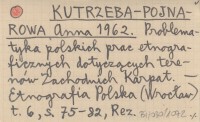 KUTRZEBA-POJNA-
ROWA Anna 1962. Problema-
tyka polskich prac etnogra-
ficznych dotyczących tere-
nów Zachodnich Karpat. —
Etnografia Polska (Wrocław)
t. 6, s. 75-92, Rez.